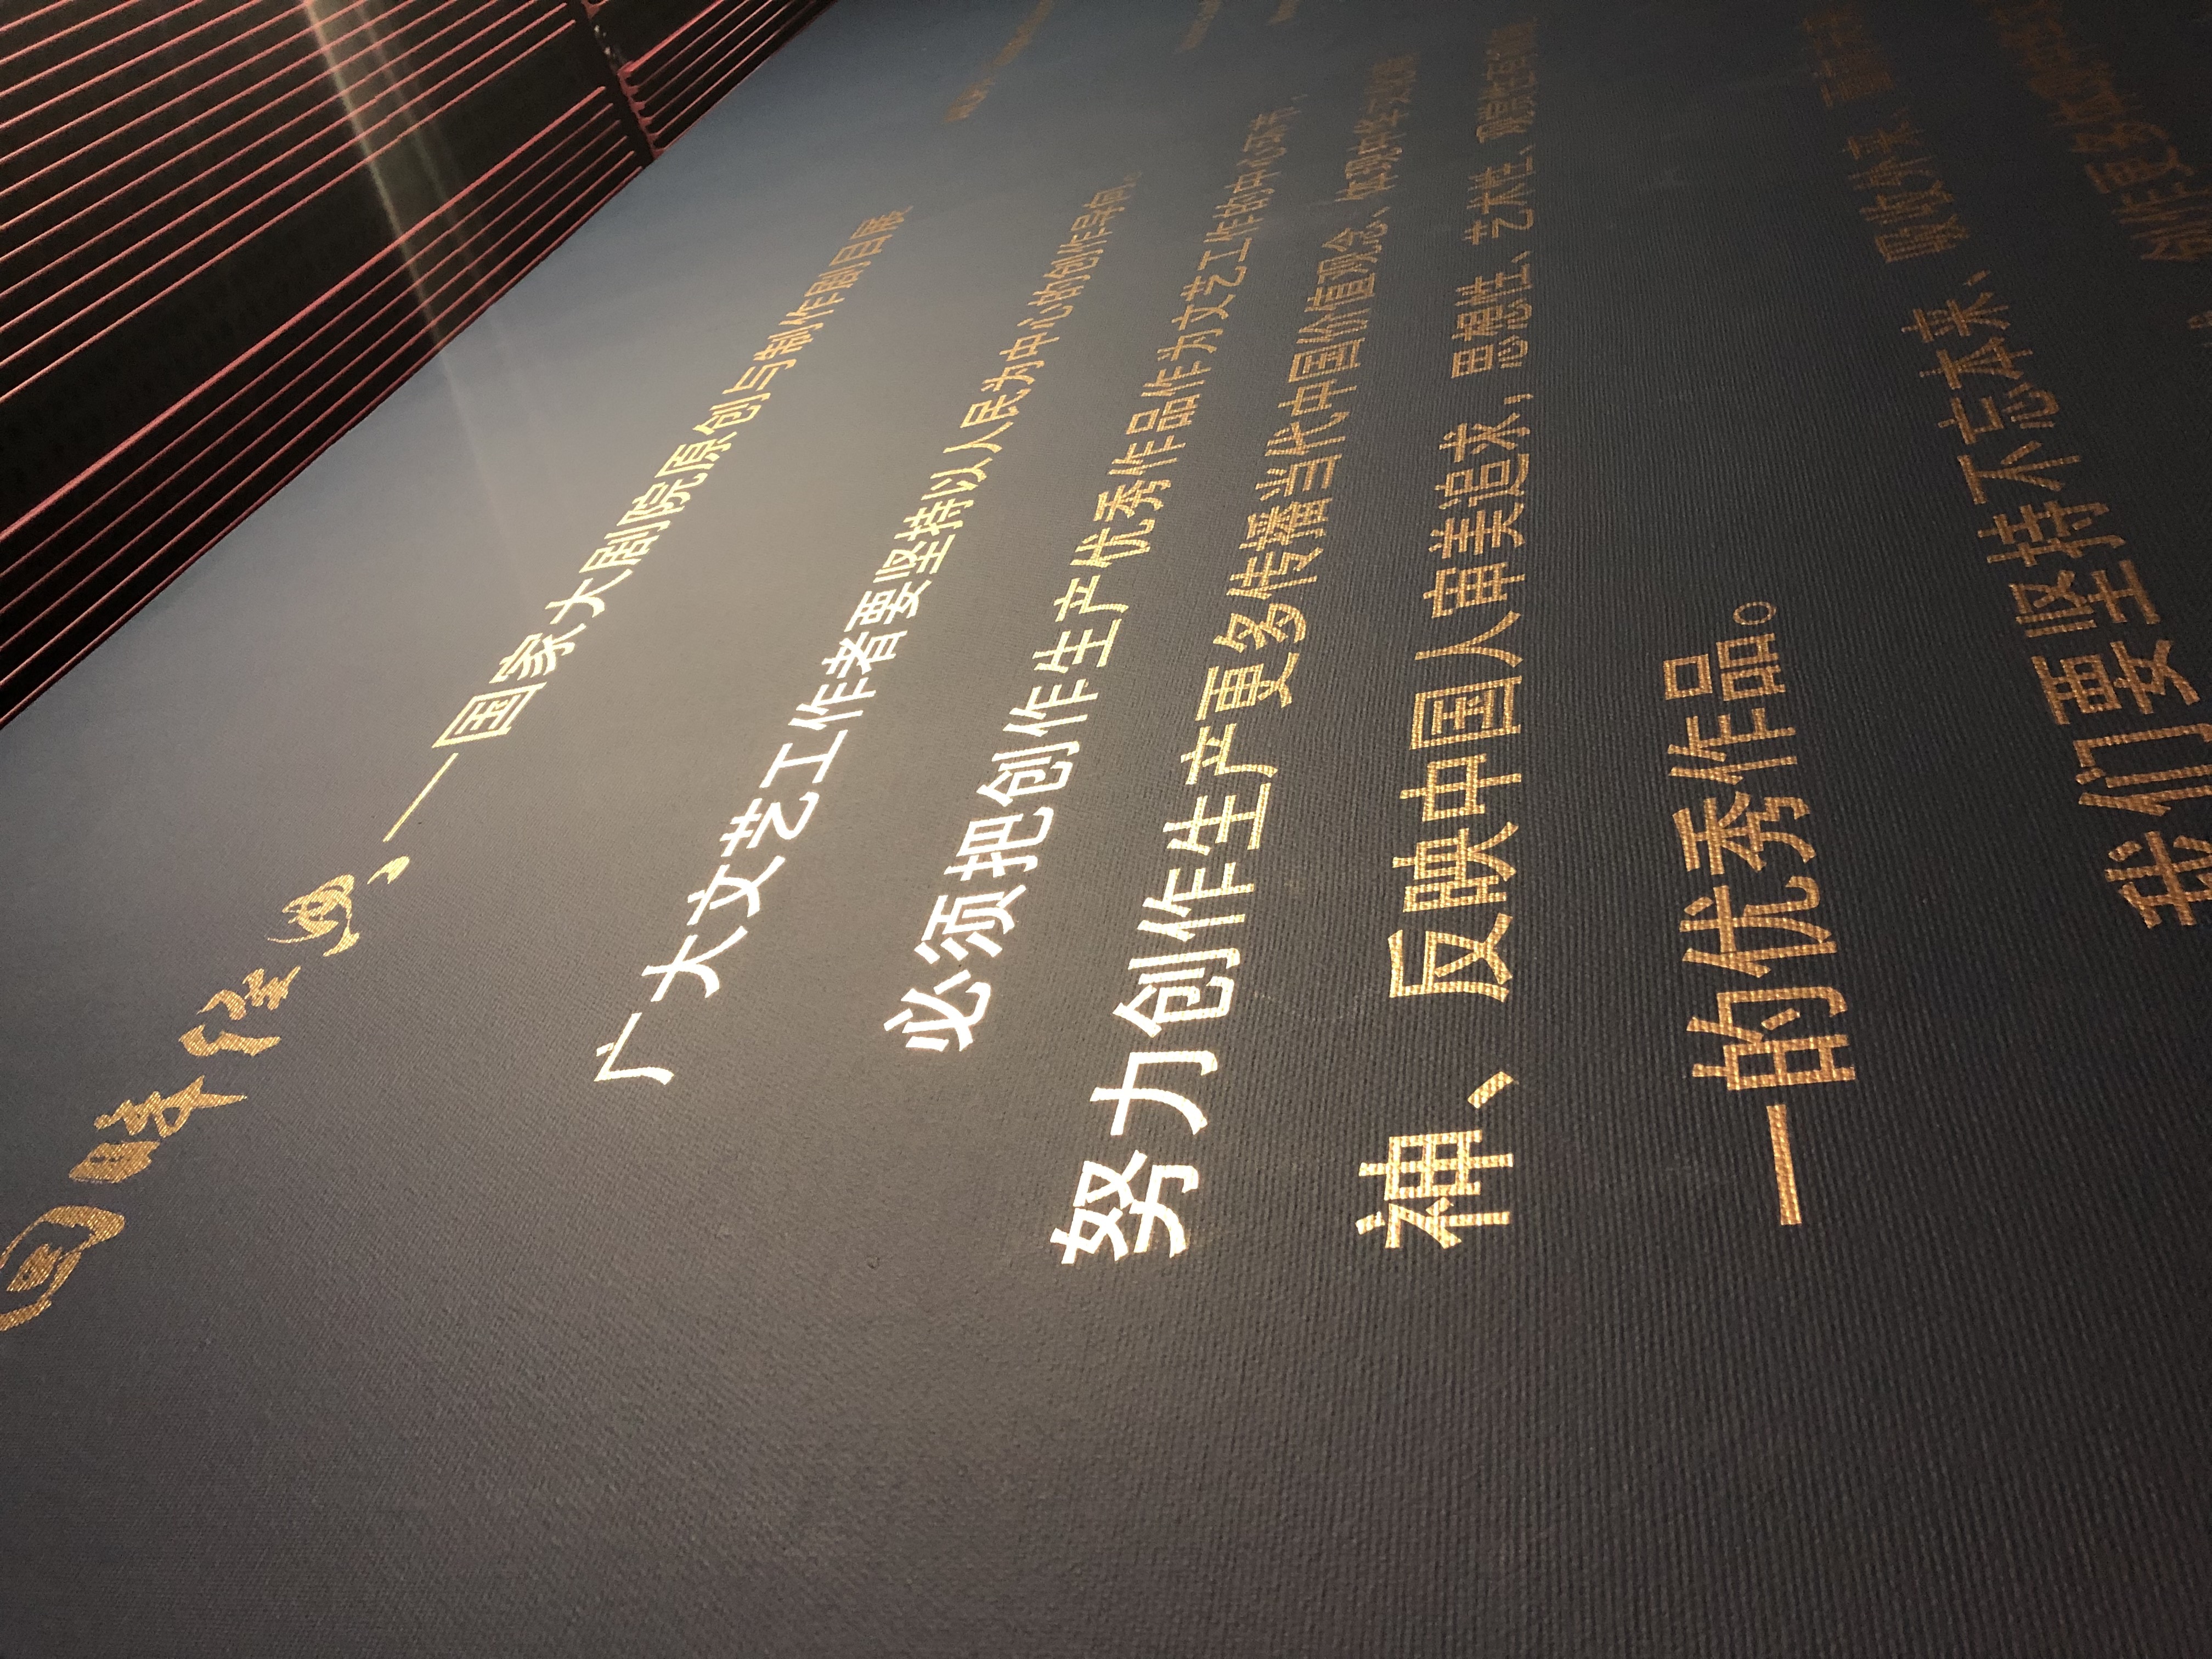 回眸经典——国家大剧院原创与制作剧目展
广大文艺工作者要坚持以人民为中心的创作导向，
必须把创作生产优秀作品作为文艺工作的中心环节，
努力创作生产更多传播当代中国价值观念、体现中华文化精
神、反映中国人审美追求，思想性、艺术性、观赏性有机统
一的优秀作品。
我们要坚持不忘本来、吸收外来、面向
创作更多体现